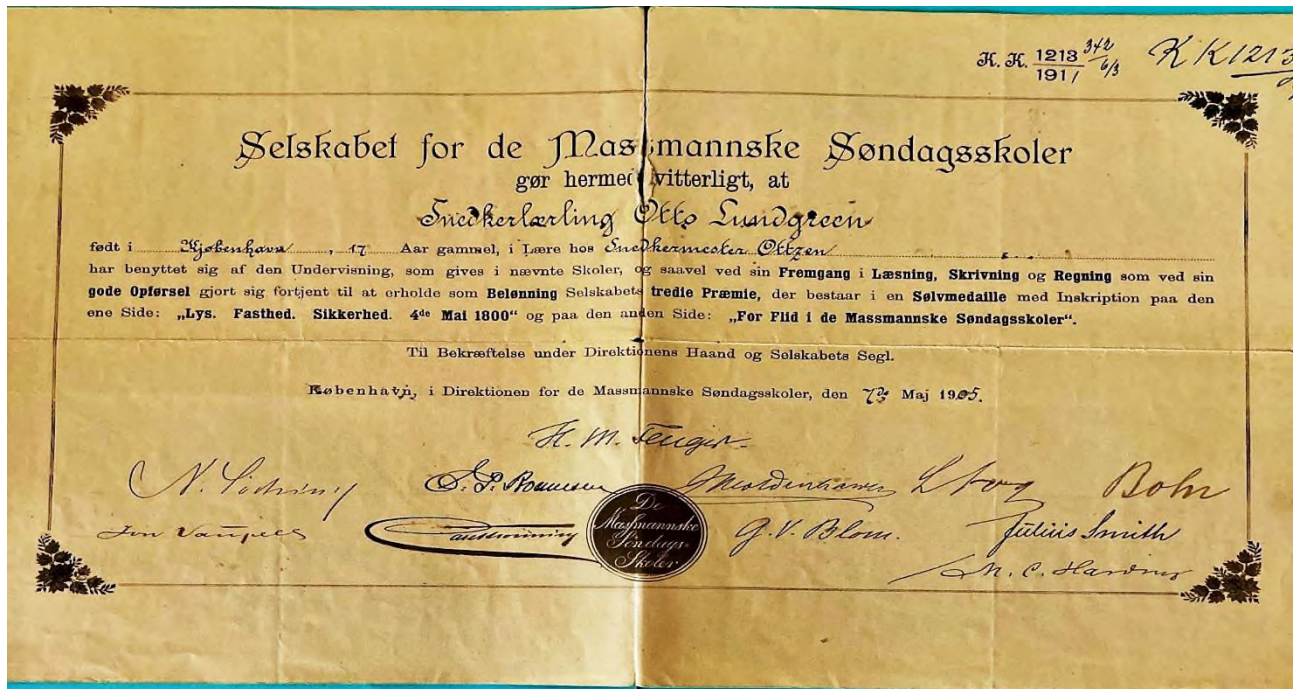 K. K. 1213/1911 342 6/3 K K 1213
Selskabet for de Massmannske Søndagsskoler
gør hermed vitterligt, at
Snedkerlærling Otto Lundgreen
født i Kjøbenhavn, 17 Aar gammel, i Lære hos Snedkermester Ottzen
har benyttet sig af den Undervisning, som gives i nævnte Skoler, og saavel ved sin Fremgang i Læsning, Skrivning og Regning som ved sin
gode Opførsel gjort sig fortjent til at erholde som Belønning Selskabets tredie Præmie, der bestaar i en Sølvmedaille med Inskription paa den
ene Side: „Lys. Fasthed. Sikkerhed. 4de Mai 1800“ og paa den anden Side: „For Flid i de Massmannske Søndagsskoler“.
Til Bekræftelse under Direktionens Haand og Selskabets Segl.
København, i Direktionen for de Massmannske Søndagsskoler, den 7de Maj 1905.
H. M. Fenger
N. S. P. Moldenhawer Bohr
G. V. Blom. Julius Smith
De
Massmannske
Søndags-
Skoler